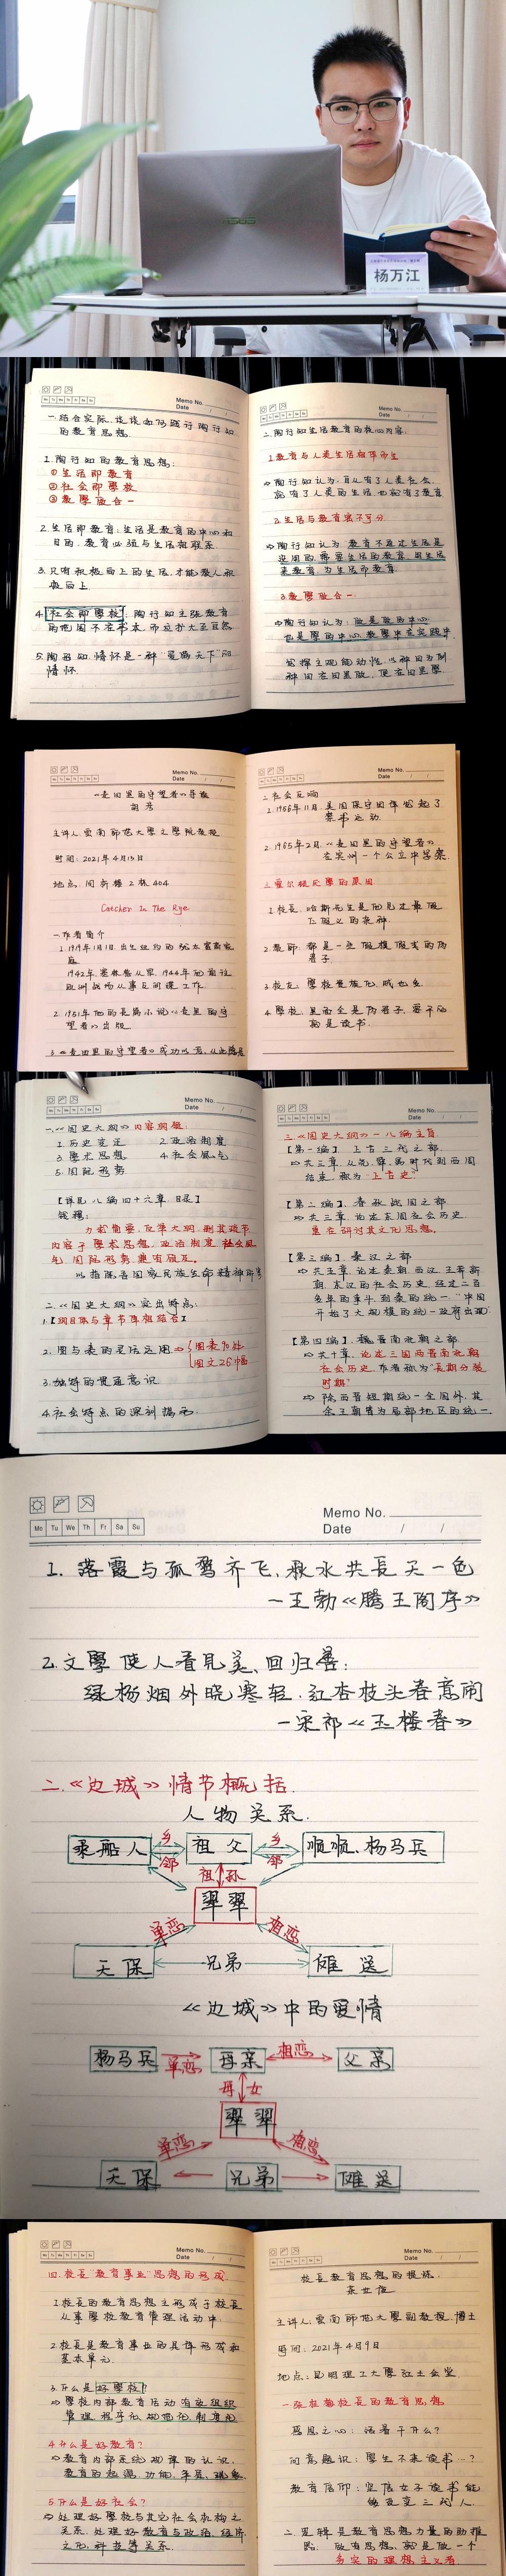 ASUS
杨万江
Memo No.
Date / /
Mo Tu We Th Fr Sa Su
一.结合实际,谈谈如何践行陶行知
的教育思想.
1.陶行知的教育思想:
①生活即教育
②社会即學校
③教學做合一
2.生活即教育:生活是教育的中心和
目的.教育必须与生活相联系.
3.只有积极向上的生活,才能教人积
极向上.
4.社会即學校:陶行知主张教育
的范围不在书本,而应扩大至自然
5.陶行知.情怀是一种"爱满天下"的
情怀.
Memo No.
Date / /
二.陶行知生活教育的核心内容.
1.教育与人类生活相伴而生
⇒陶行知认为:自从有了人类社会
就有了人类的生活也就有了教育
2.生活与教育密不可分
⇒陶行知认为:教育不通过生活是
没用的.需要生活的教育,用生活
来教育,为生活而教育
3.教學做合一.
⇒陶行知认为:做是教的中心
也是學的中心.教學中在实践中
发挥主观能动性.以种田为例
种田在田里做,便在田里學
Memo No.
Date / /
《麦田里的守望者》导读
主讲人:雲南師范大學文學院教授
时间:2021年4月13日
地点:同析楼2栋404
Catcher In The Rye
一.作者简介
1.1919年1月1日.出生纽约的犹太富商家
庭
1942年塞林格从军.1944年他前往
欧洲战场从事反间谍工作
2.1951年他的长篇小说《麦里的守
望者》出版.
3.《麦田里的守望者》成功以后,从此隐居
Memo No.
Date / /
二.社会反响
1.1956年11月.美国保守团体发起了
禁书运动.
2.1965年2月《麦田里的守望者》
在实州一个公立中学禁.
三.霍尔顿厌學的原因
1.校长:哈斯先生是他见过最假
仁假义的杂种.
2.教师:都是一些假模假式的伪
君子.
3.校友:學校里糙他.贼也多.
4.學校:里面全是伪君子.要干的
就是读书.
Memo No.
Date / /
一.《国史大纲》内容纲领:
1.历史变迁 2.政治制度
3.學术思想 4.社会风气
5.国际形势
【详见八编四十六章.目录】
钱穆:
力求简要,仅举大纲,删其琐节
内容于學术思想,政治制度,社会风
气,国际形势,兼有顾及.
以指陈吾国家民族生命精神所寄
二.《国史大纲》突出特点:
1.【纲目体与章节体相结合】
2.图与表的灵活运用⇒{图表9处
图文26幅
3.独特的贯通意识.
4.社会特点的深刻揭示.
Memo No.
Date / /
三.《国史大纲》一八编主旨.
【第一编】上古三代之部.
⇒共三章.从虞.舜.禹时代到西周
结束.称为"上古史"
【第二编】.春秋战国之部
⇒共三章.论述东周社会历史.
重在研讨其文化思想.
【第三编】.秦汉之部
⇒共五章.论述秦朝.西汉.王莽新
朝.东汉的社会历史.经过二百
多年的争斗.到秦的统一."中国
开始了大规模的统一政府出现"
【第四编】.魏晋南北朝之部
⇒共十章.论述三国两晋南北朝
社会历史.作者称为"长期分裂
时期"
⇒除西晋短期统一全国外,其
余王朝皆为局部地区的统一
Memo No.
Date / /
Mo Tu We Th Fr Sa Su
1.落霞与孤鹜齐飞,秋水共長天一色
—王勃《腾王阁序》
2.文學使人看見美,回归善:
绿杨烟外晓寒轻.红杏枝头春意闹
—宋祁《玉楼春》
二.《边城》情节概括.
人物关系.
乘船人 乡邻 祖父 乡邻 顺顺、杨马兵
祖孙
翠翠
单恋 相恋
天保 兄弟 傩送
《边城》中的爱情
杨马兵 单恋 母亲 相恋 父亲
母女
翠翠
单恋 相恋
天保 兄弟 傩送
Memo No.
Date / /
四.校長"教育事业"思想的形成.
1.校長的教育思想主形成于校長
从事學校教育管理活动中.
2.校長是教育事业的具体形成和
基本单元.
3.什么是好學校?
⇒學校内部教育活动有效组织
管理.程序化.规范化.制度化
4.什么是好教育?
⇒教育内部系统规律的认识.
教育的起源.功能.本质.现象
5.什么是好社会?
⇒处理好學校与其它社会机构之
关系.处理好教育与政治.经济
文化,科技等关系.
Memo No.
Date / /
校長教育思想的提炼.
茶世俊
主讲人:雲南師范大學副教授.博士
时间:2021年4月9日
地点:昆明理工大學红土会堂
一.张桂梅校長的教育思想
感恩之心:活着干什么?
问题意识:學生不来读书…?
教育信仰:坚信女子读书能
够改变三代人.
二.逻辑是教育思想力量的助推
器.做有思想,就是做一个
务实的理想主义者